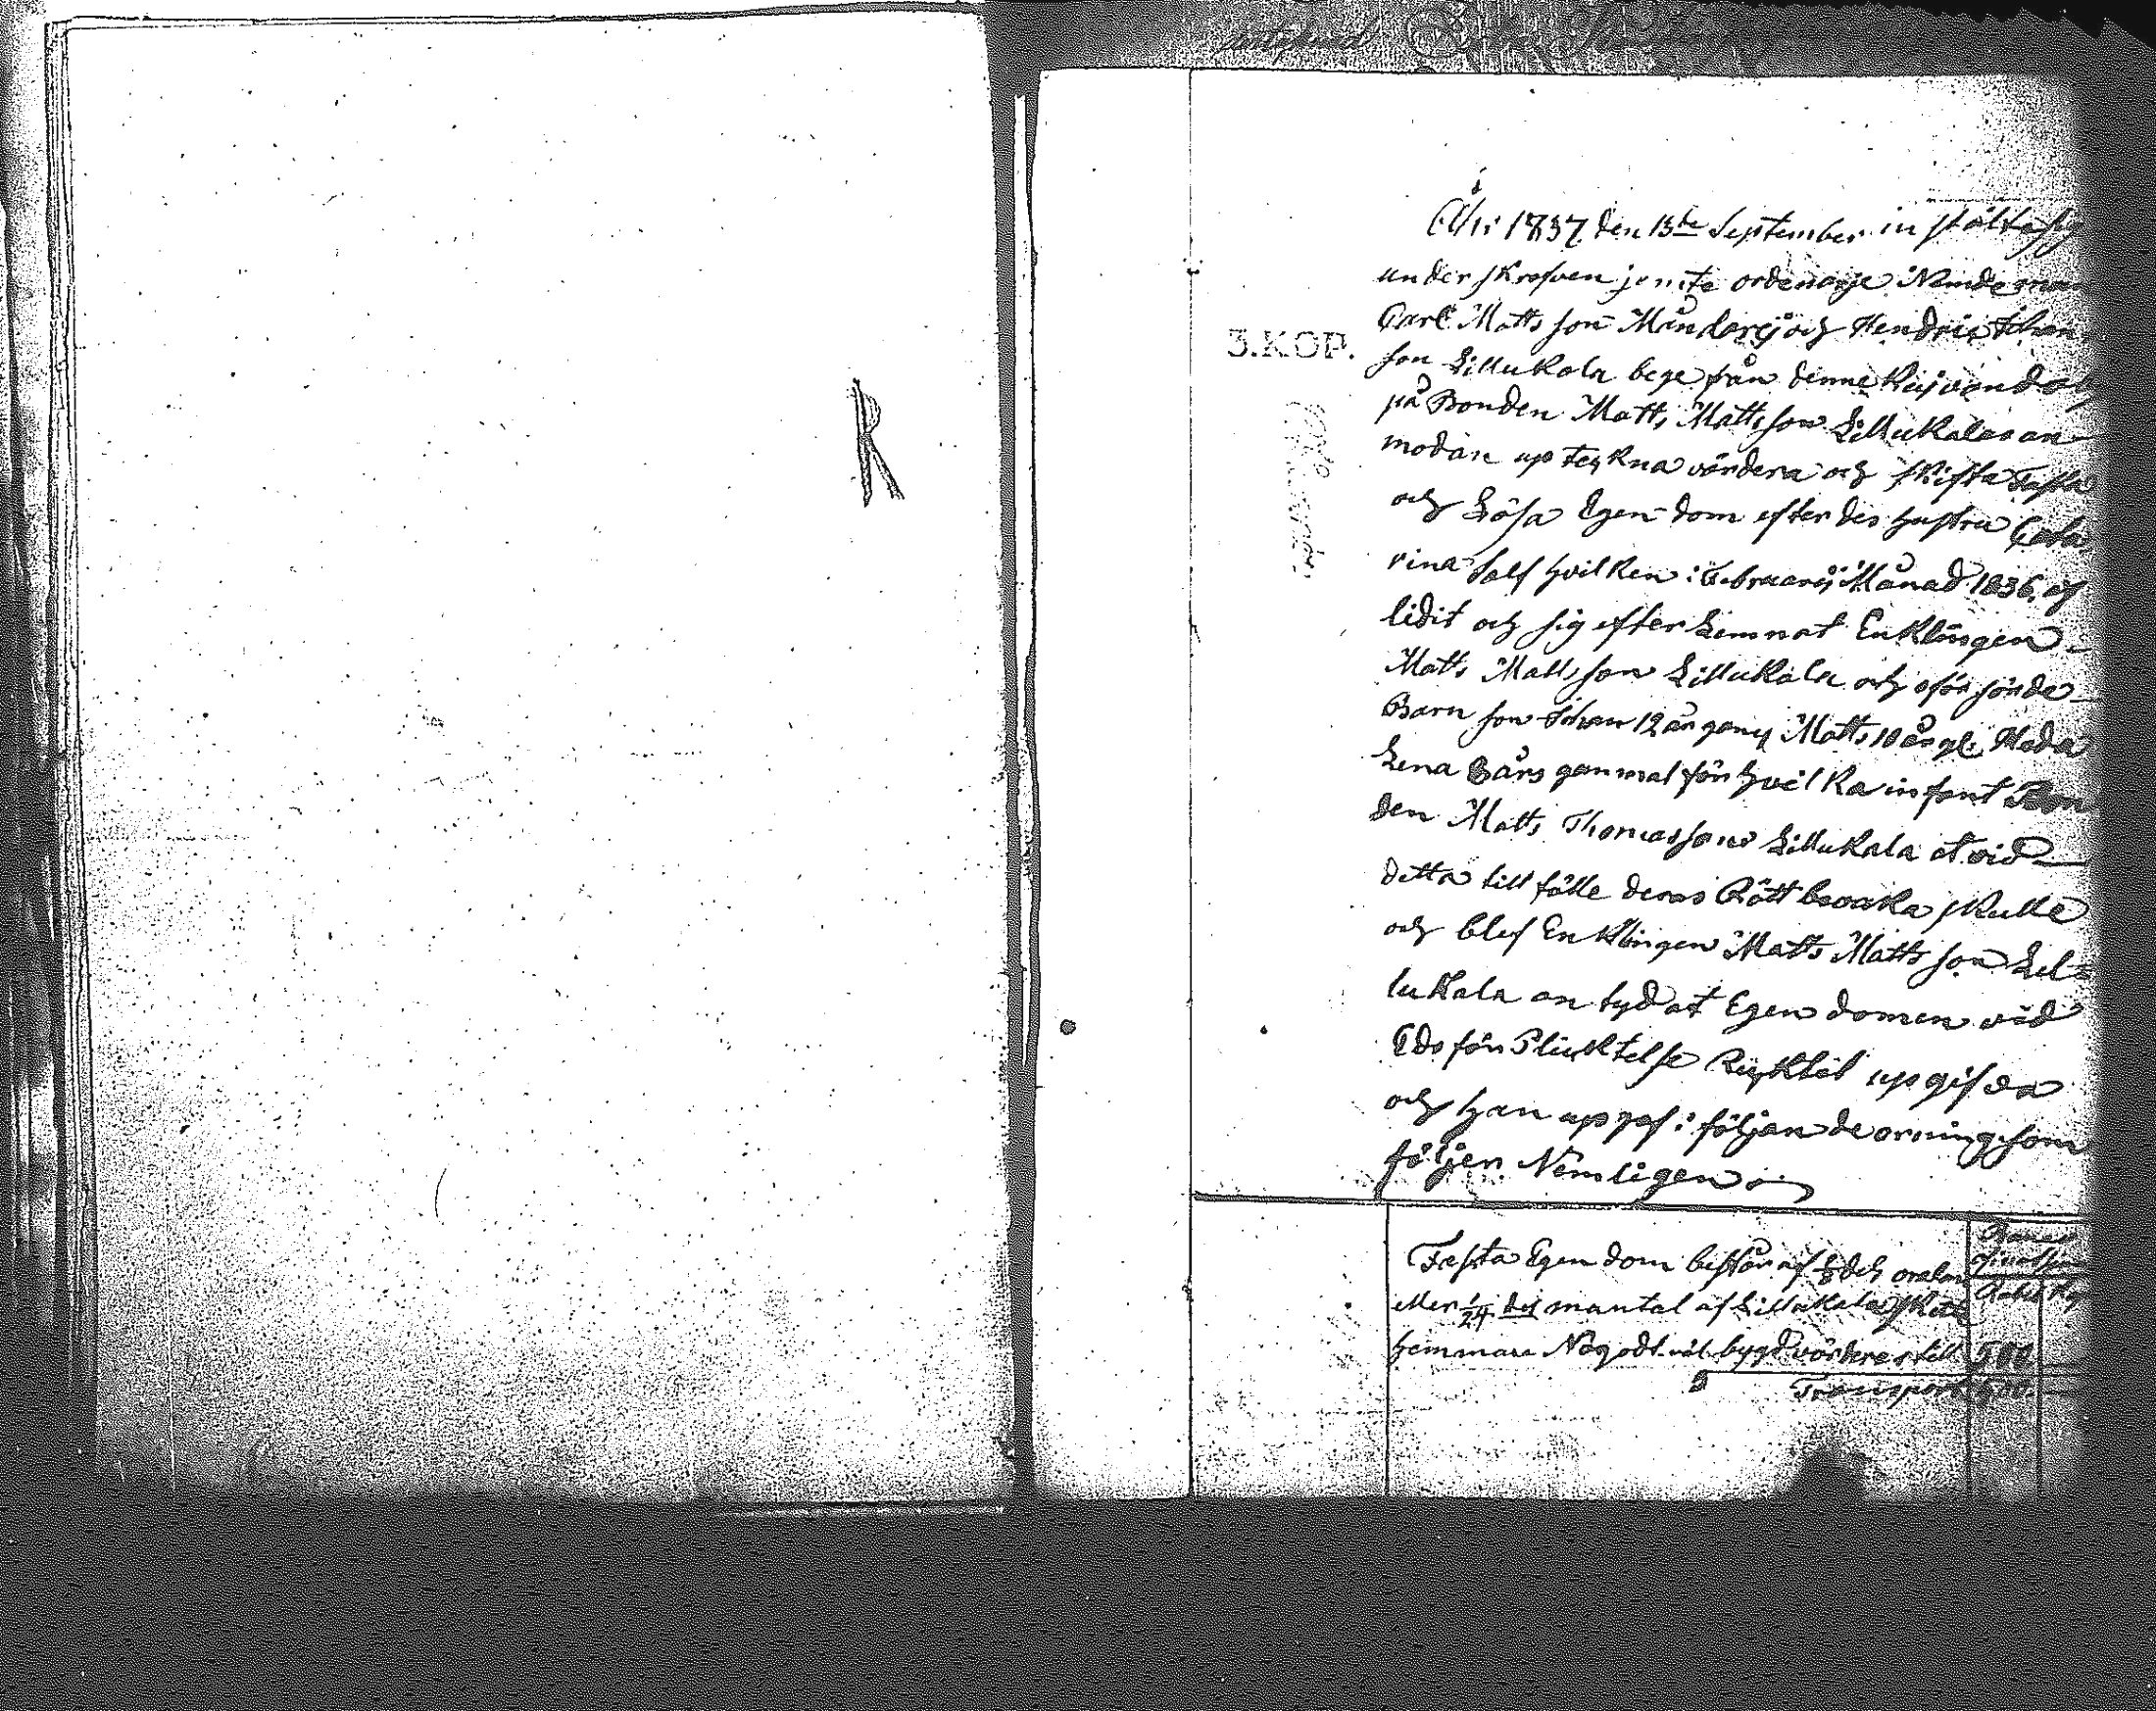 R
År 1837 den 13de September instälte sig
underskrefven jemte ordenarje Nemdeman
Carl Mattsson Månkarsj och Hendric Johan
3.KOP.
son Lillukala på
på Bonden Matts Mattsson Lillukalas an-
modan up teckna värdera och skifta Fasta
och Lösa Egendom efter des hustru Cata
rina Salf hvilken i Februarij Månad 1836 af
lidit och sig efter Lemnat Enklingen
Matts Mattsson Lillukala och oförsörgda
Barn son Johan 12 år gamm Matts 10 år gl.
Lena 3 års gammal för hvilka infant Bon
den Matts Thomasson Lillukala at vid
detta tillfälle deras Rätt bevaka skulle
och blef Enklingen Matts Mattsson Lil
lukala an tyd at Egendomen vid
Eds för Plicktelse Ricktit upgifva
och han upgaf i följande orning som
följer Nemligen
Fasta Egendom består af 1/8 dels
eller 1/24 del mantal af Lillukala Skatte
hemman No godt väl bygd värderes till 500
Transport 500